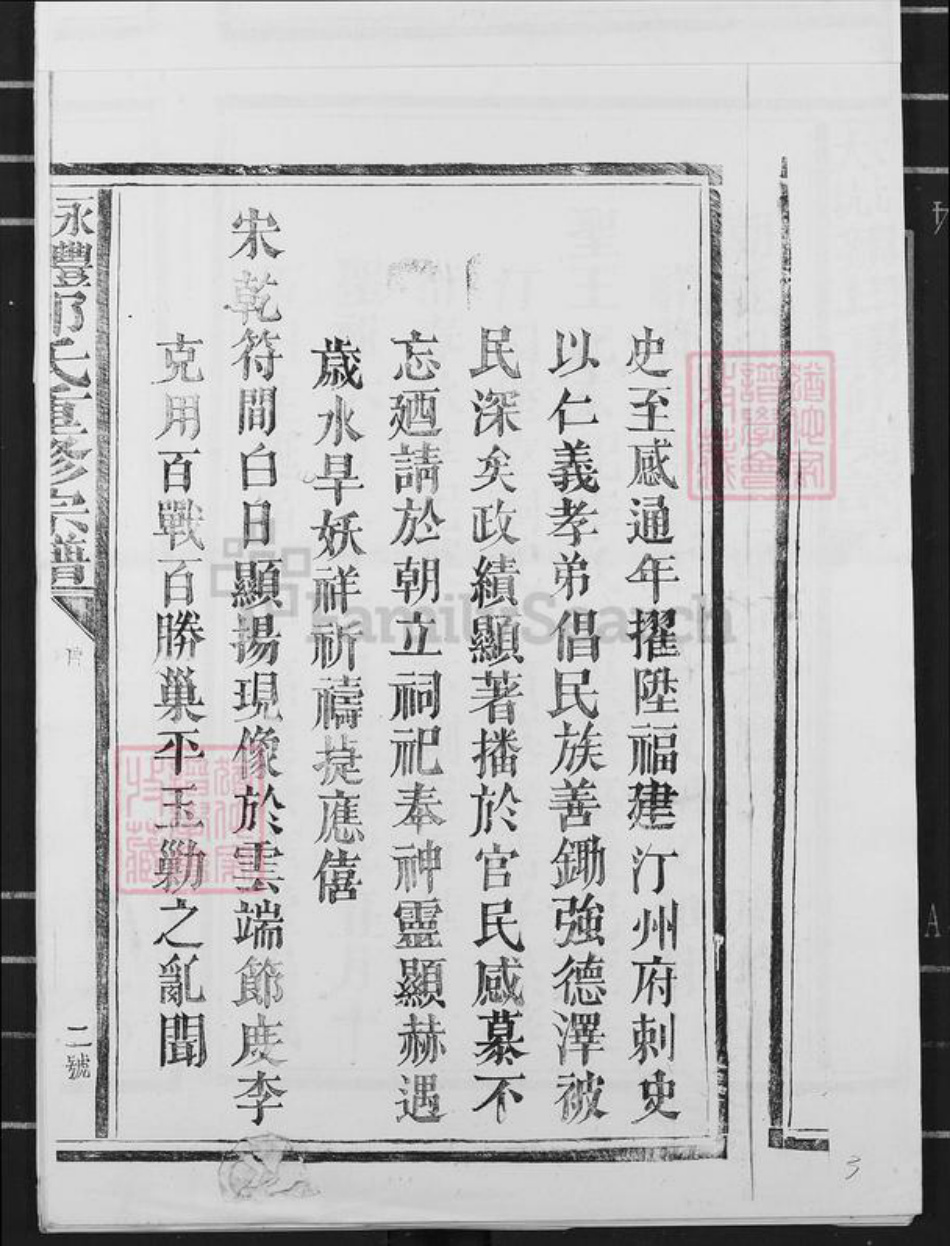 史至感通年擢陞福建汀州府刺史
以仁義孝弟倡民族善鋤強德澤被
民深矣政績顯著播於官民感慕不
忘廼請於朝立祠祀奉神靈顯赫遇
歲水旱妖祥祈禱㨗應僖
宋乾符間白日顯揚現像於雲端節度李
克用百戰百勝巢平玉勦之亂聞
永豐鄧氏重修宗譜
二號
FamilySearch
3